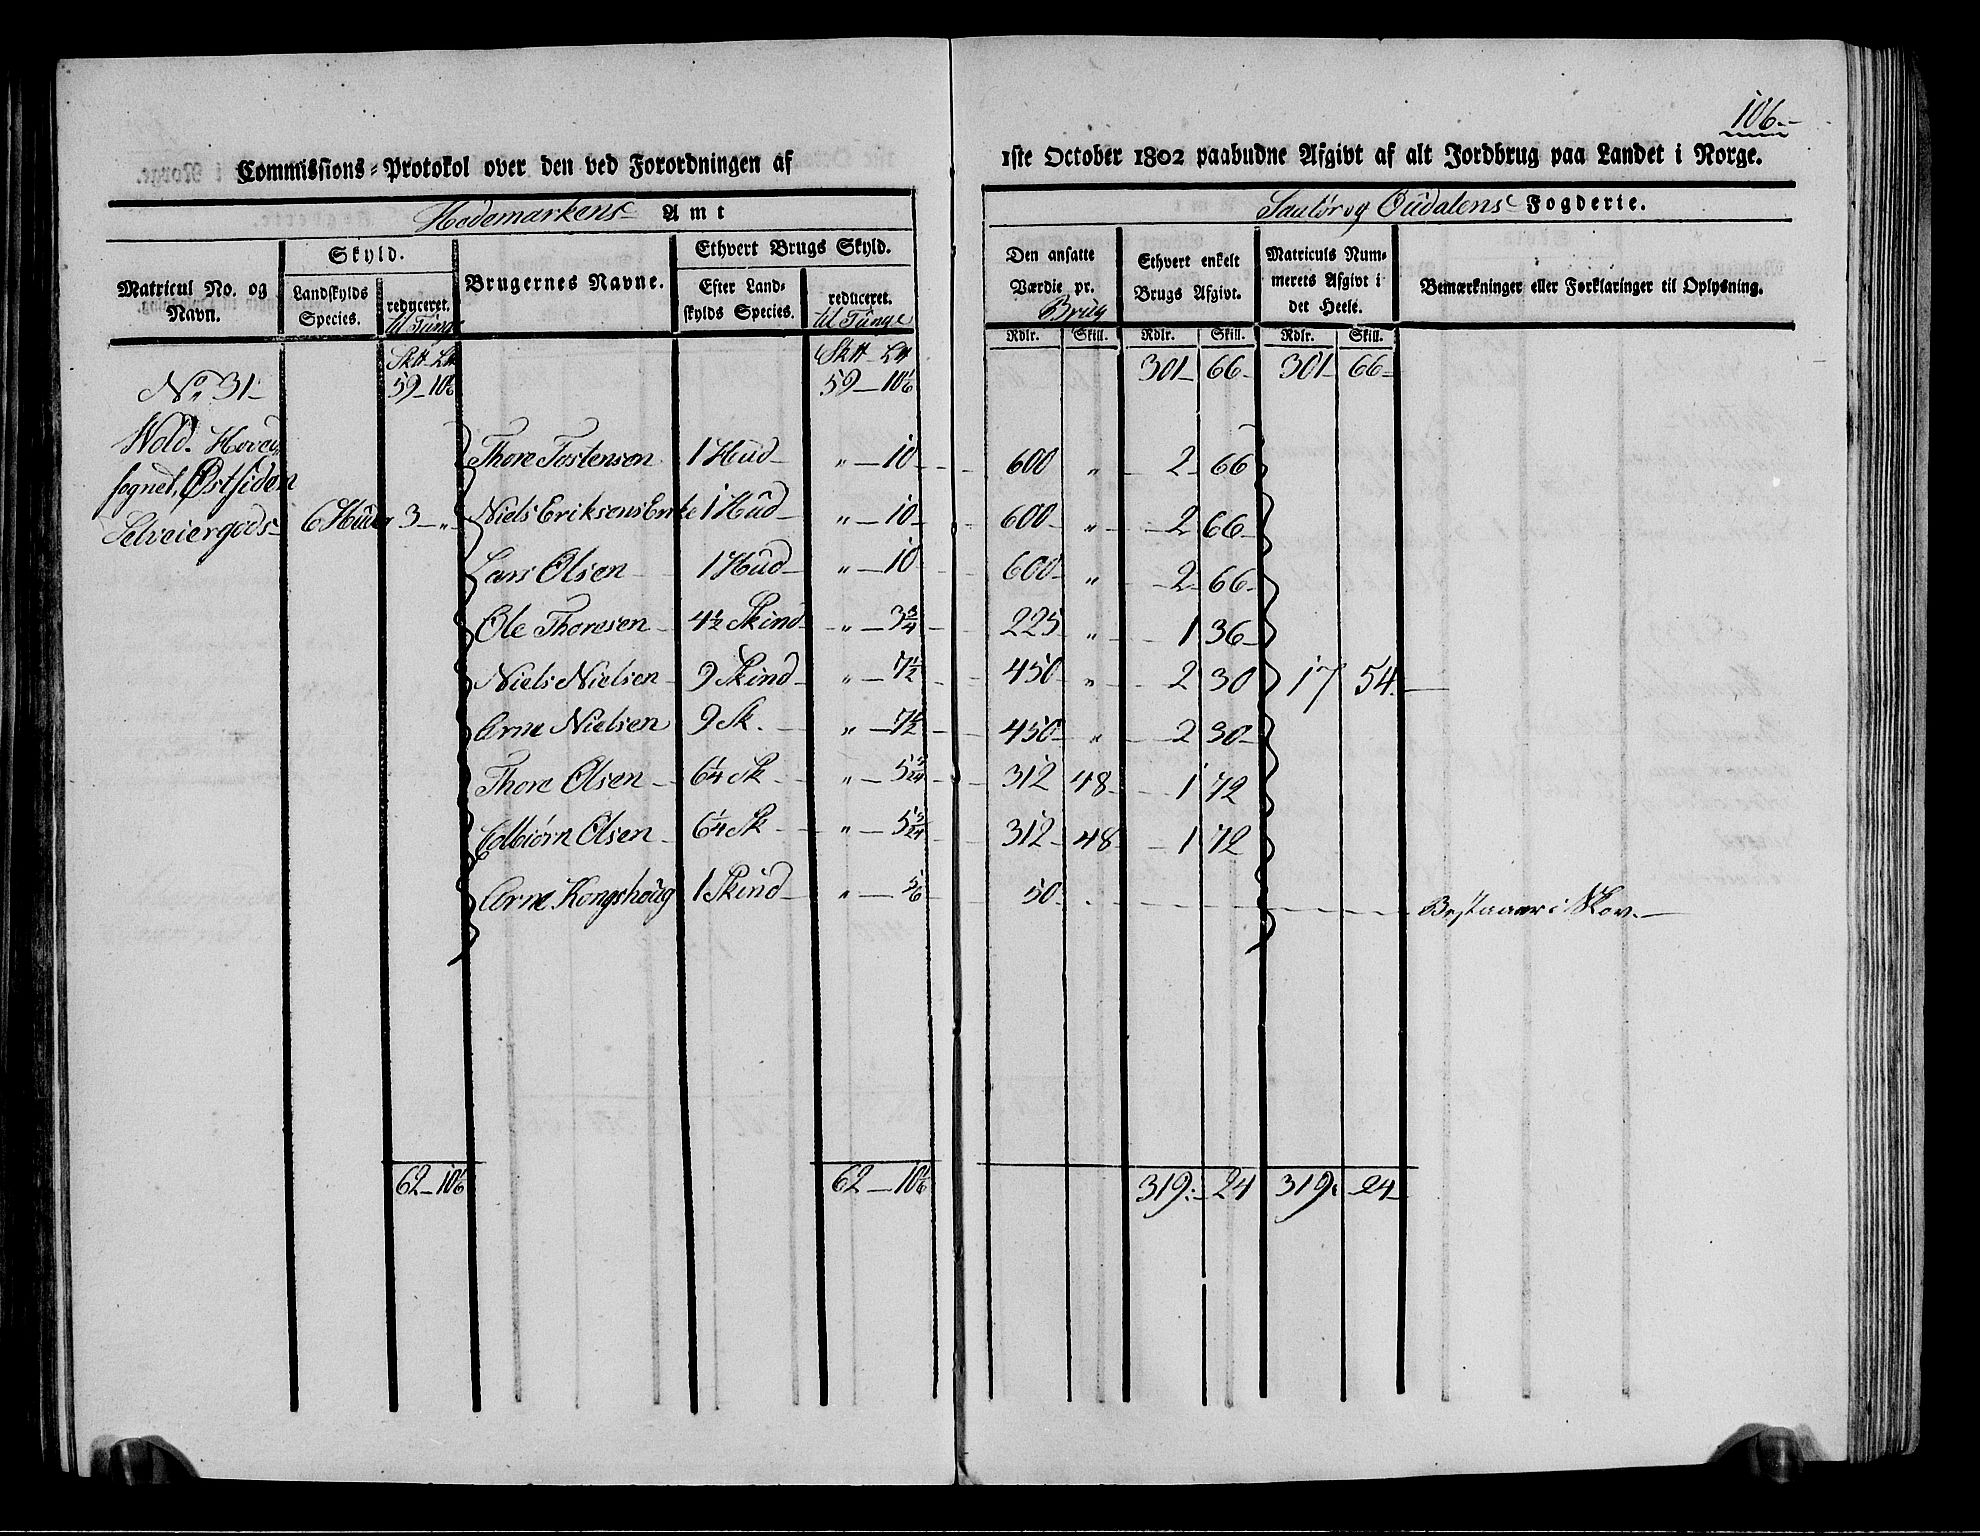 106.
Commissions-Protokol over den ved Forordningen af 1ste October 1802 paabudne Afgivt af alt Jordbrug paa Landet i Norge.
Hedemarkens Amt
Soulør og Oudalens Fogderie.
Matricul No. og Navn.
Skyld.
Landskylds Species.
reduceret.
til Tunge
Brugernes Navne.
Ethvert Brugs Skyld.
Efter Landskylds Species.
reduceret.
til Tunge
Den ansatte Værdie pr. Brug
Ethvert enkelt Brugs Afgivt.
Matriculs Nummerets Afgivt i det Heele.
Bemærkninger eller Forklaringer til Oplysning.
Rdlr. Skill. Rdlr. Skill. Rdlr. Skill.
No 31 59 – 10 1/6 59 – 10 1/6 301 – 66 – 301 – 66 –
Wold. Hoved
sognet, Østsiden
Selveiergods 6 Huder 3 – „
Thore Tostensen 1 Hud „ – 10 600 „ 2 66
Niels Eriksens Enke 1 Hud „ – 10 600 „ 2 66
Lars Olsen 1 Hud „ – 10 600 „ 2 66
Ole Thoresen 4½ Skind „ – 3¾ 225 „ 1 36
Niels Nielsen 9 Skind „ – 7½ 450 „ 2 30 17 54
Arne Nielsen 9 Sk. „ – 7½ 450 „ 2 30
Thore Olsen 6¼ Sk „ – 5 5/24 312 48 1 72
Olsen 6¼ Sk „ – 5 5/24 312 48 1 72
Arne Kongshoug 1 Skind „ – 5/6 50 Bestaaer i Skov.
62 – 10 1/6 62 – 10 1/6 319. 24 319. 24